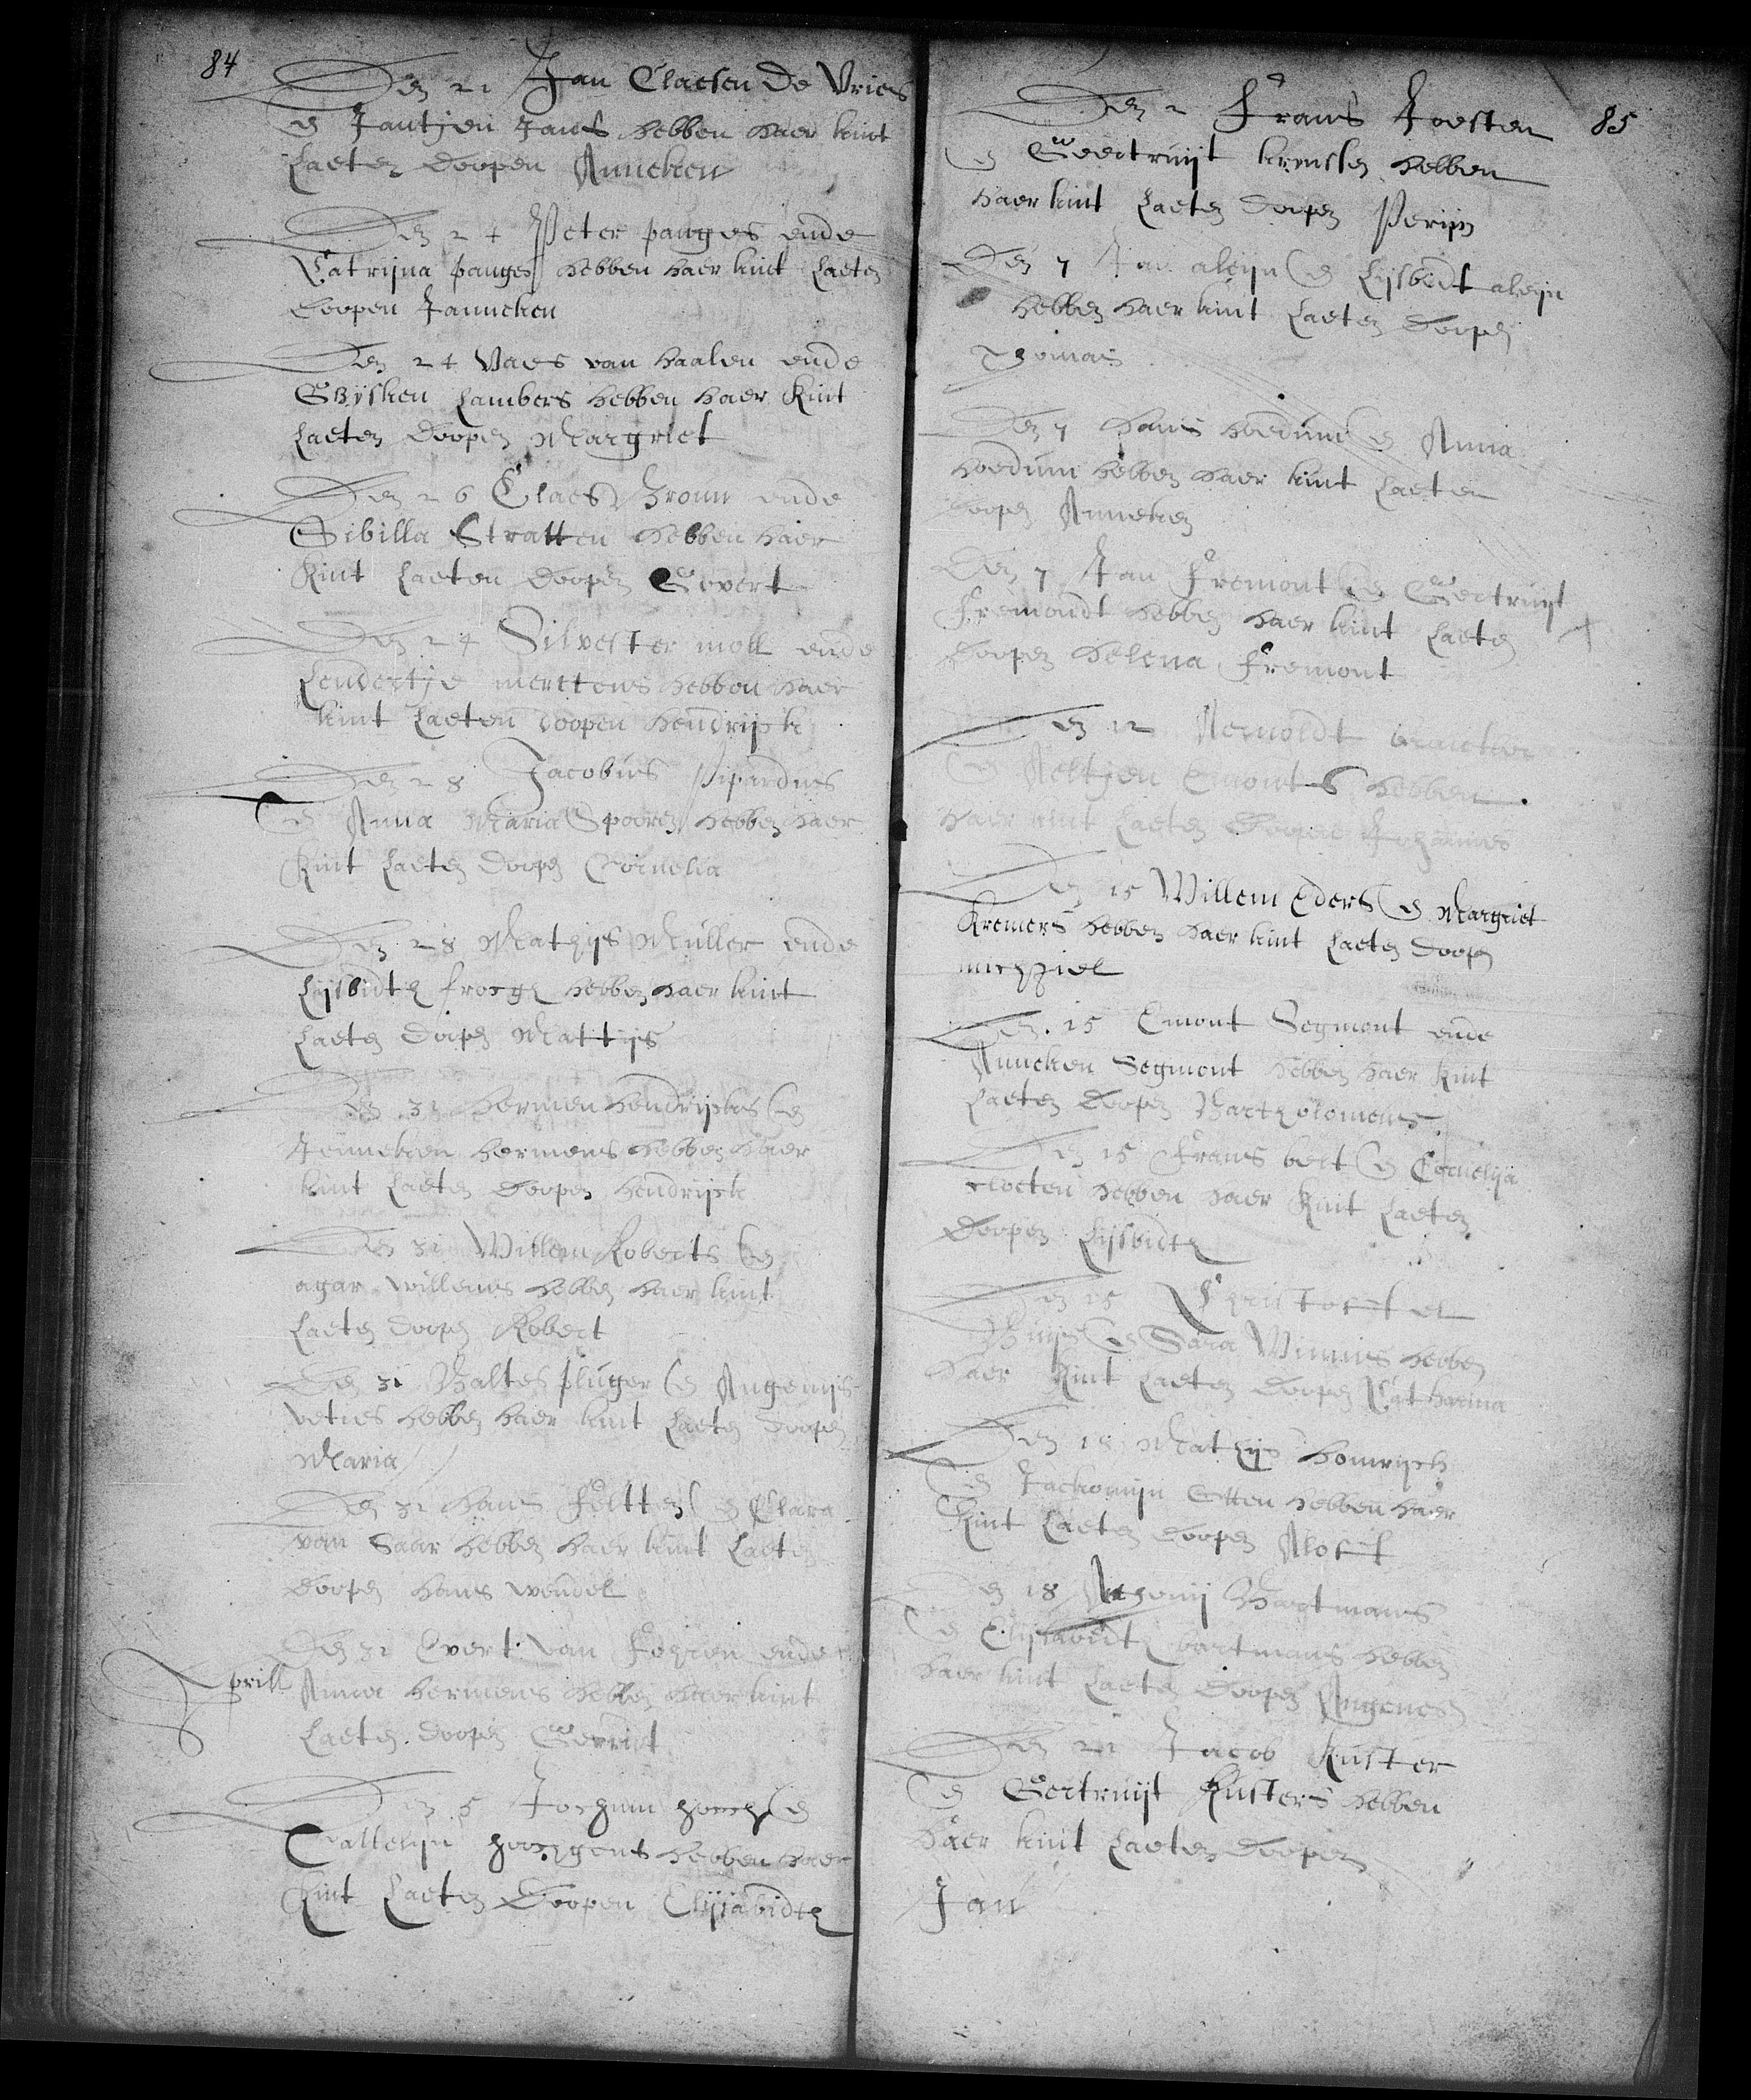 84
Den 21 Jan Claesen De Vries
en Jantjen Jans hebben haer kint
Laeten doopen Anneken
Den 24 Peter panges ende
Catrijna panges hebben haer kint Laeten
doopen Janneken
Den 24 Vaes van haalen ende
Gijsken Lambers hebben haer Kint
Laeten doopen Margriet
Den 26 Claes Broun ende
Sibilla Stratten hebben haer
Kint Laeten doopen Govert
Den 24 Silvester moll ende
Lendertje merttens hebben haer
kint Laeten doopen hendrijck
Den 28 Jacobus
en Anna Maria Spoeren hebben haer
Kint Laeten doopen Cornelia
Den 28 Mathijs Muller ende
Lijsbidth hebben haer kint
Laeten doopen Mattijs
Den 31 hermen hendrijcks en
Jenneken hermens hebben haer
kint Laeten doopen hendrijck
Den 31 Willem Roberts en
agar willems hebben haer kint
Laeten doopen Robert
Den 31 Baltes pluger en Angenijs
veties hebben haer kint Laeten doopen
Maria
Den 31 hans Feltten en Clara
van Saar hebben haer kint Laeten
doopen hans wendel
Den 31 Evert van ende
Aprill
Anna hermens hebben haer kint
Laeten doopen Gerridt
Den 5 Jochum en
Cattelijn hebben haer
Kint Laeten Doopen Elijsabidth
85
Den 2 Frans Joesten
en Geertruijt hebben
haer kint Laeten doopen Perijn
Den 7 Jan aleijn en Lijsbedt aleijn
hebben haer kint Laeten doopen
Thomas
Den 7 hans hoedum en Anna
hoedum hebben haer kint Laeten
doopen Anneken
Den 7 Jan Fremont en Geertruijt
Fremondt hebben haer kint Laeten
doopen helena Fremont
Den 12 Aernoldt
en Aeltjen Emonts hebben
haer kint Laeten doopen Johannes
Den 15 Willem Eders en Margriet
Kremers hebben haer kint Laeten doopen
michgiel
Den 15 Emont Segmont ende
Anneken Segmont hebben haer Kint
Laeten doopen Bartholomeus
Den 15 Frans bert en Cornelija
cloeten hebben haer Kint Laeten
Doopen Lijsbidth
Den 15 Christoffel
Buijs en Sara Winnis hebben
haer Kint Laeten doopen Catharina
Den 18 Mathijs homrijch
en Jackomijn Otten hebben haer
Kint Laeten doopen Aloff
Den 18 Anthonij Hartmans
en Elijsabidth hartmans hebben
haer kint Laeten doopen Angenes
Den 21 Jacob Kuster
en Geertruijt Kusters hebben
haer kint Laeten doopen
Jan